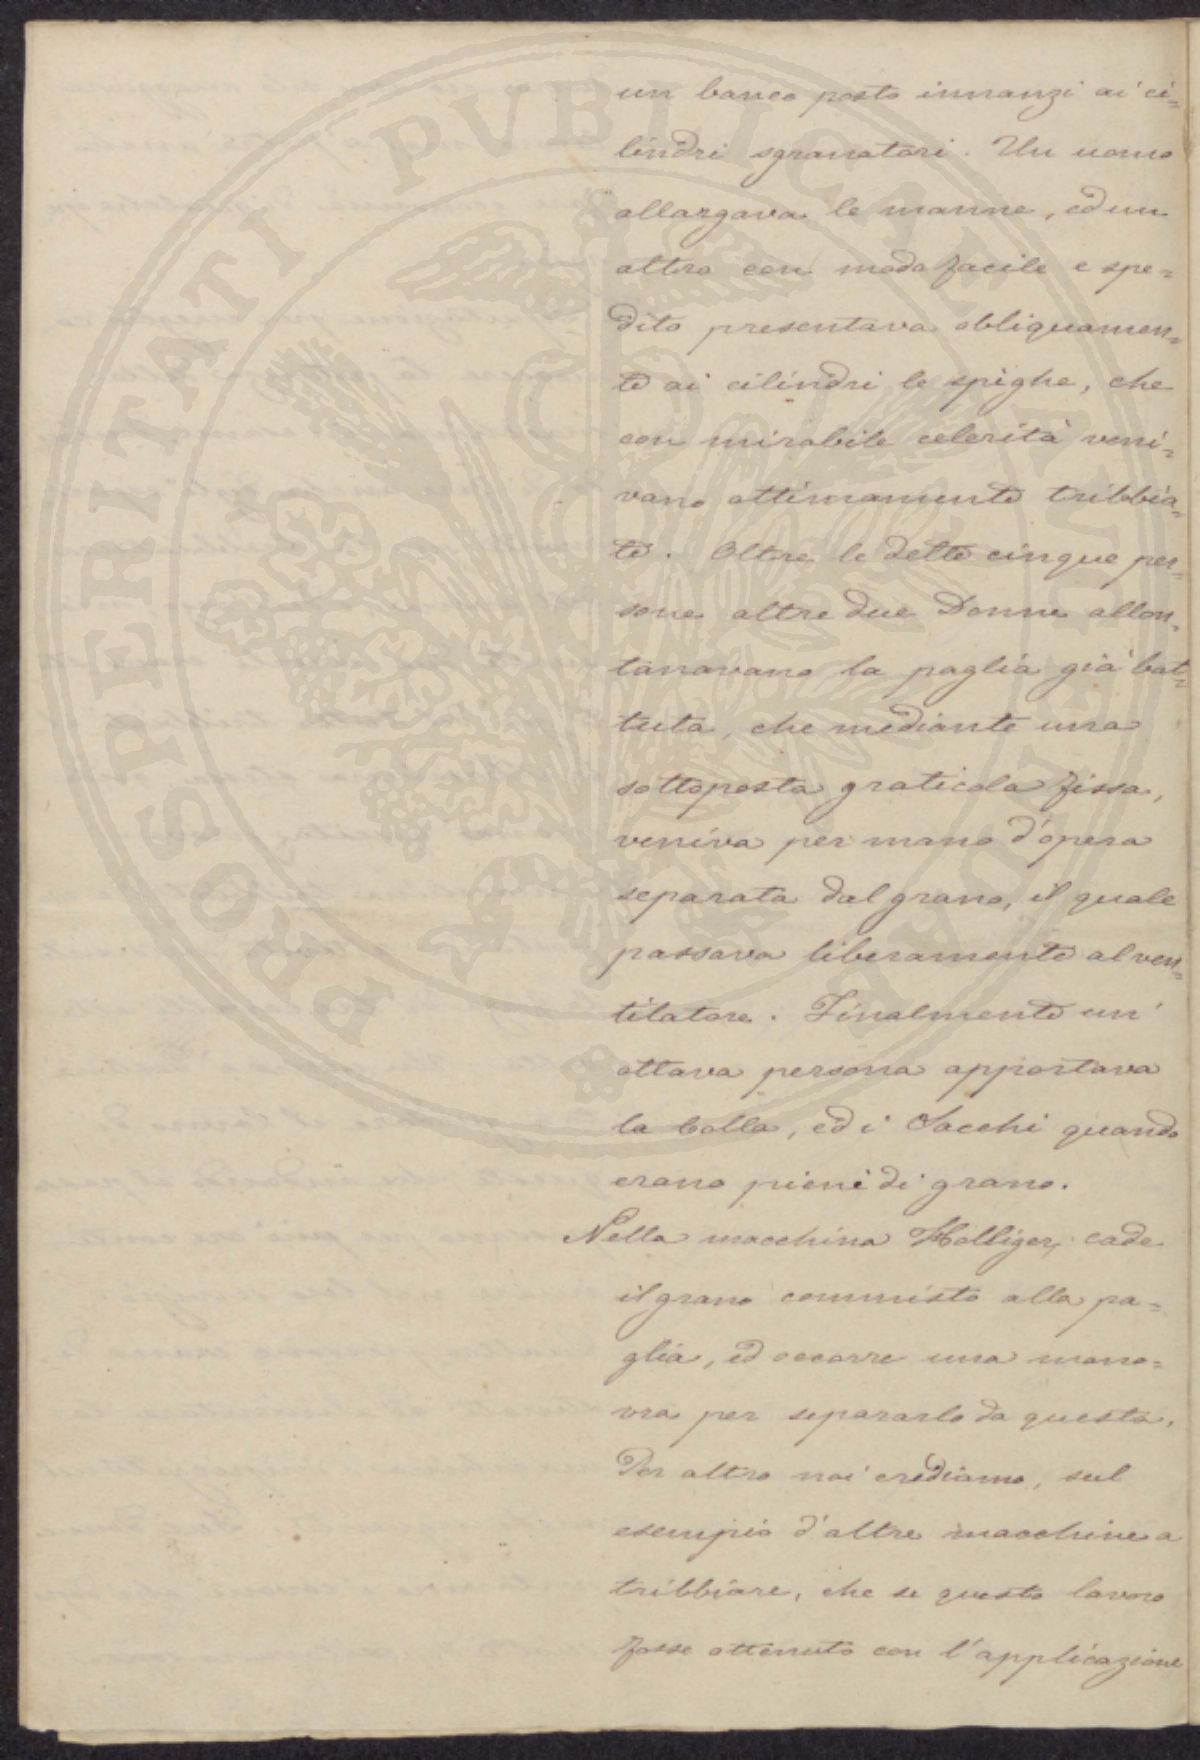 un banco posto innanzi ai ci=
lindri sgranatori. Un uomo
allargava le manne, ed un
altro con modo facile e spe=
dito presentava obliquamen=
te ai cilindri le spighe, che
con mirabile celerità veni=
vano ottimamente tribbia=
te. Oltre le dette cinque per=
sone altre due Donne allon=
tanavano la paglia già bat=
tuta, che mediante una
sottoposta graticola fissa,
veniva per mano d'opera
separata dal grano, il quale
passava liberamente al ven=
tilatore. Finalmente un'
ottava persona apportava
la bolla, ed i Sacchi quando
erano pieni di grano.
Nella macchina Holliger, cade
il grano commisto alla pa=
glia, ed occorre una mano=
vra per separarlo da questa.
Per altro noi crediamo, sul
esempio d'altre macchine a
tribbiare, che se questo lavoro
fosse ottenuto con l'applicazione
PROSPERITATI PVBLICAE AVGENDAE